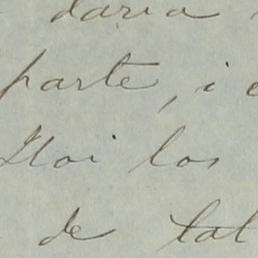 daria
parte, i
Hoi los
de tal